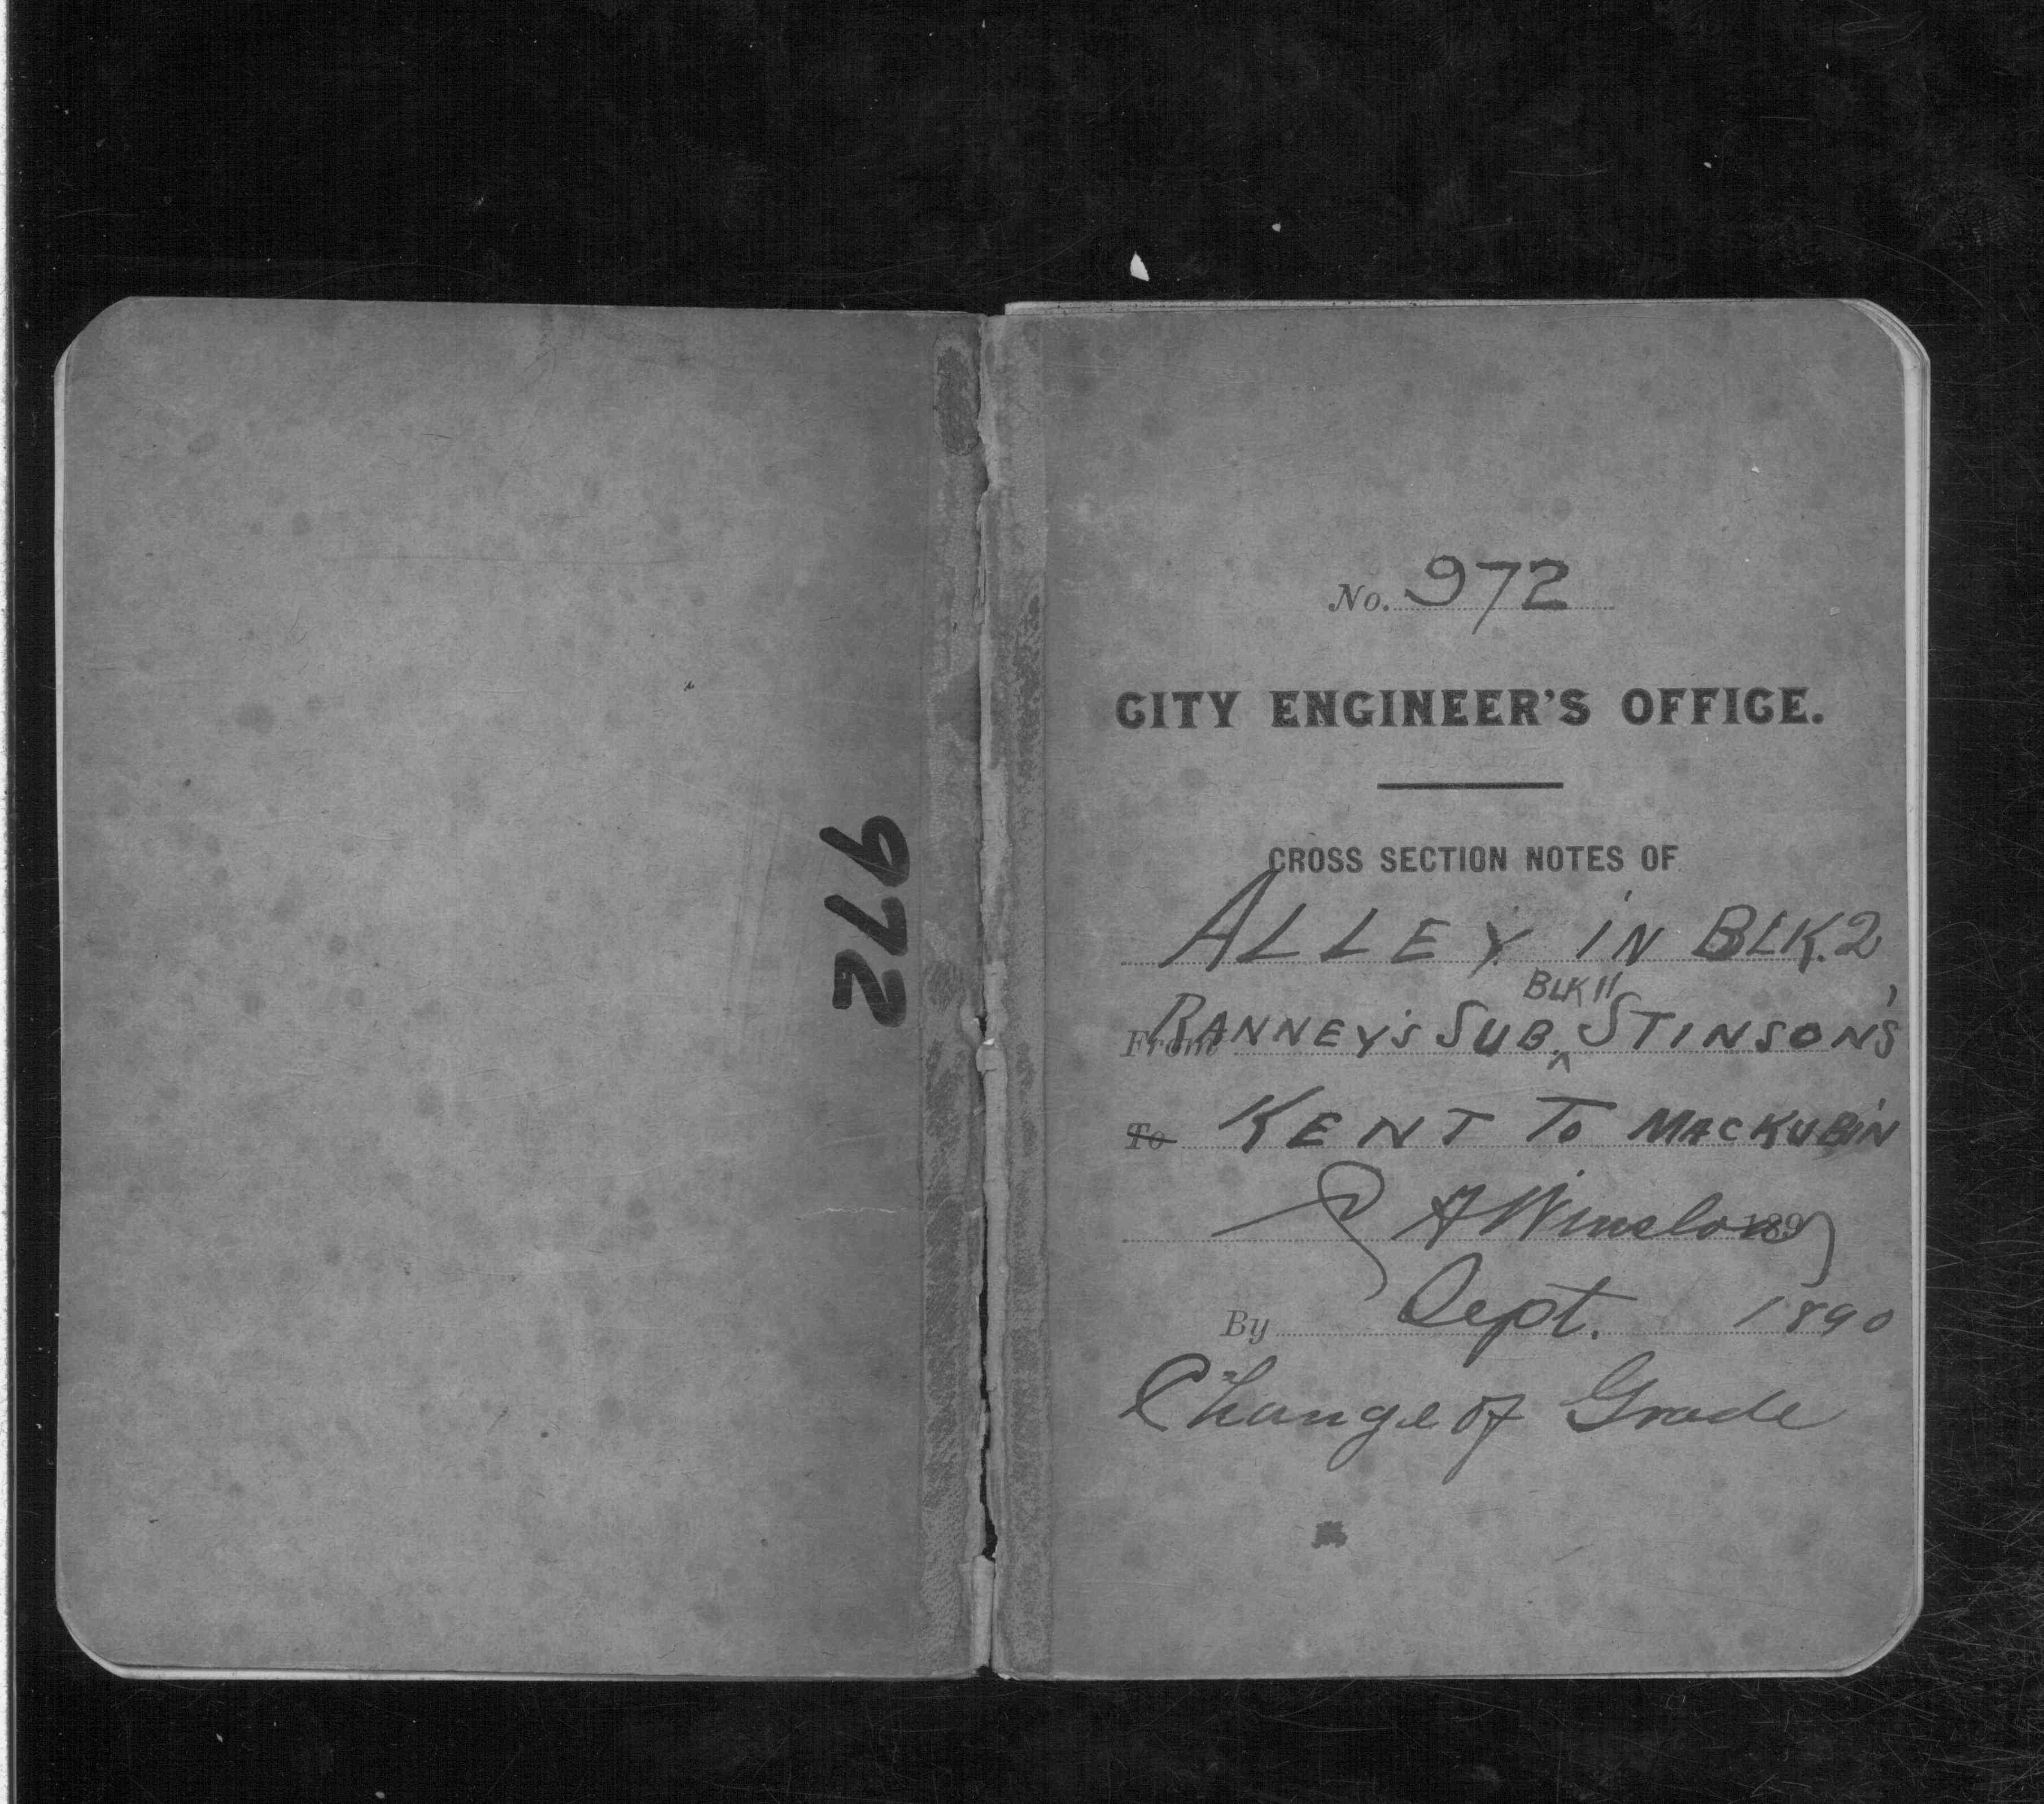 972
No. 972
CITY ENGINEER'S OFFICE.
CROSS SECTION NOTES OF
ALLEY IN BLK. 2
BLK 11
From RANNEY'S SUB. ^ STINSON'S
To KENT To MACKUBIN
A Winslow 189
By Sept. 1890
Change of Grade